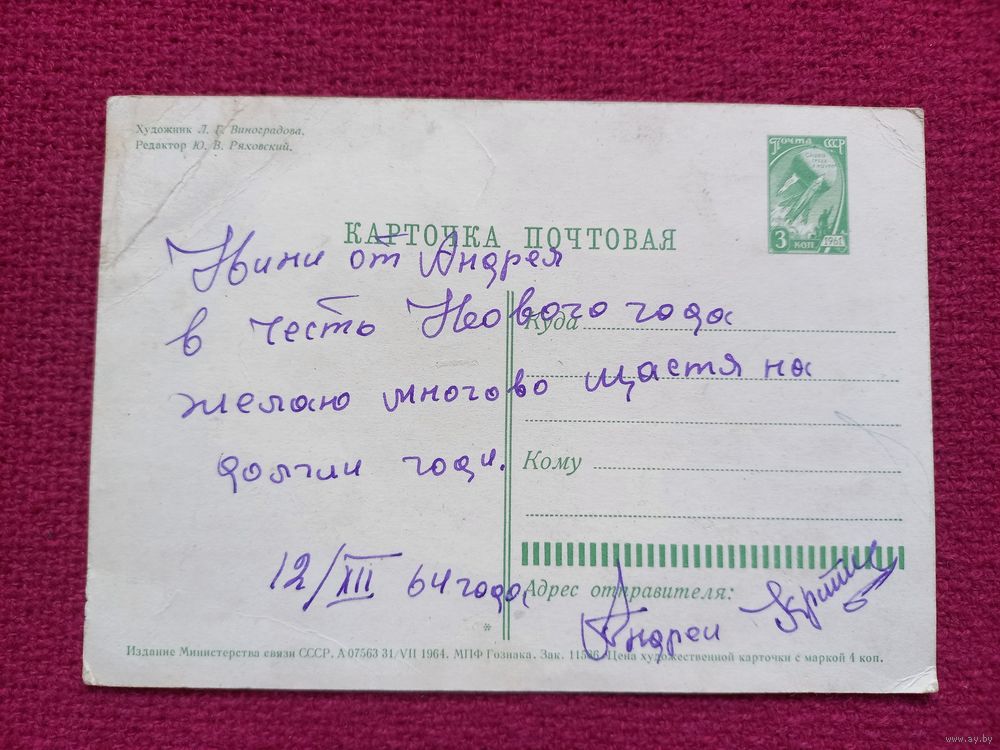 Художник Л. Г. Виноградова.
Редактор Ю. В. Ряховский.
Почта СССР
3 коп 1961
КАРТОЧКА ПОЧТОВАЯ
Нини от Андрея
в честь Нового года
желаю многово щастя на
долгии годи.
Куда
Кому
12/XII 64 года
Адрес отправителя:
Андреи
Издание Министерства связи СССР. А 07563 31/VII 1964. МПФ Гознака. Зак. 11536. Цена художественной карточки с маркой 4 коп.
www.ay.by